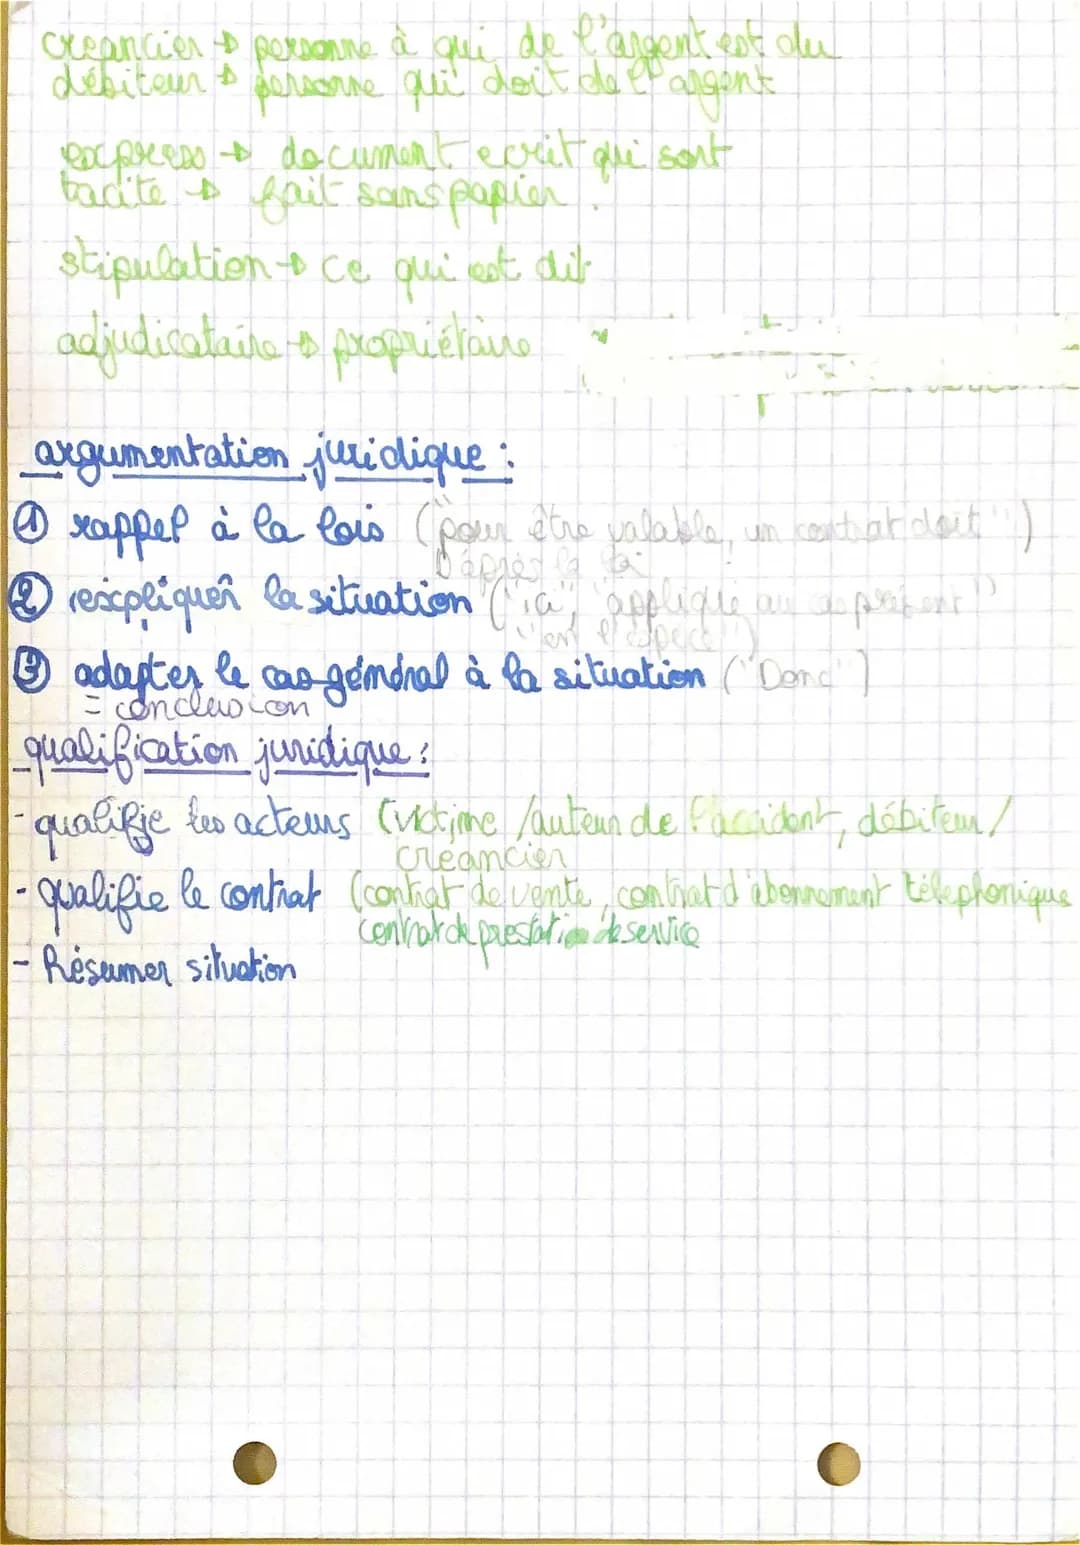 creancier → personne à qui de l'argent est du
débiteur → personne qui doit de l'argent
express → document ecrit qui sont
tacite → fait sans papier.
stipulation → ce qui est dit
adjudicataire → propriétaire
argumentation juridique :
① rappel à la lois ("pour être valable, un contrat doit")
D'après la loi
② expliquer la situation ("ici", "applique au cas présent"
"en l'espèce")
③ adapter le cas général à la situation ("Donc")
= conclusion
qualification juridique :
- qualifie les acteurs (victime / auteur de l'accident, débiteur /
creancier
- qualifie le contrat (contrat de vente, contrat d'abonnement téléphonique
contrat de prestation de service
- Résumer situation